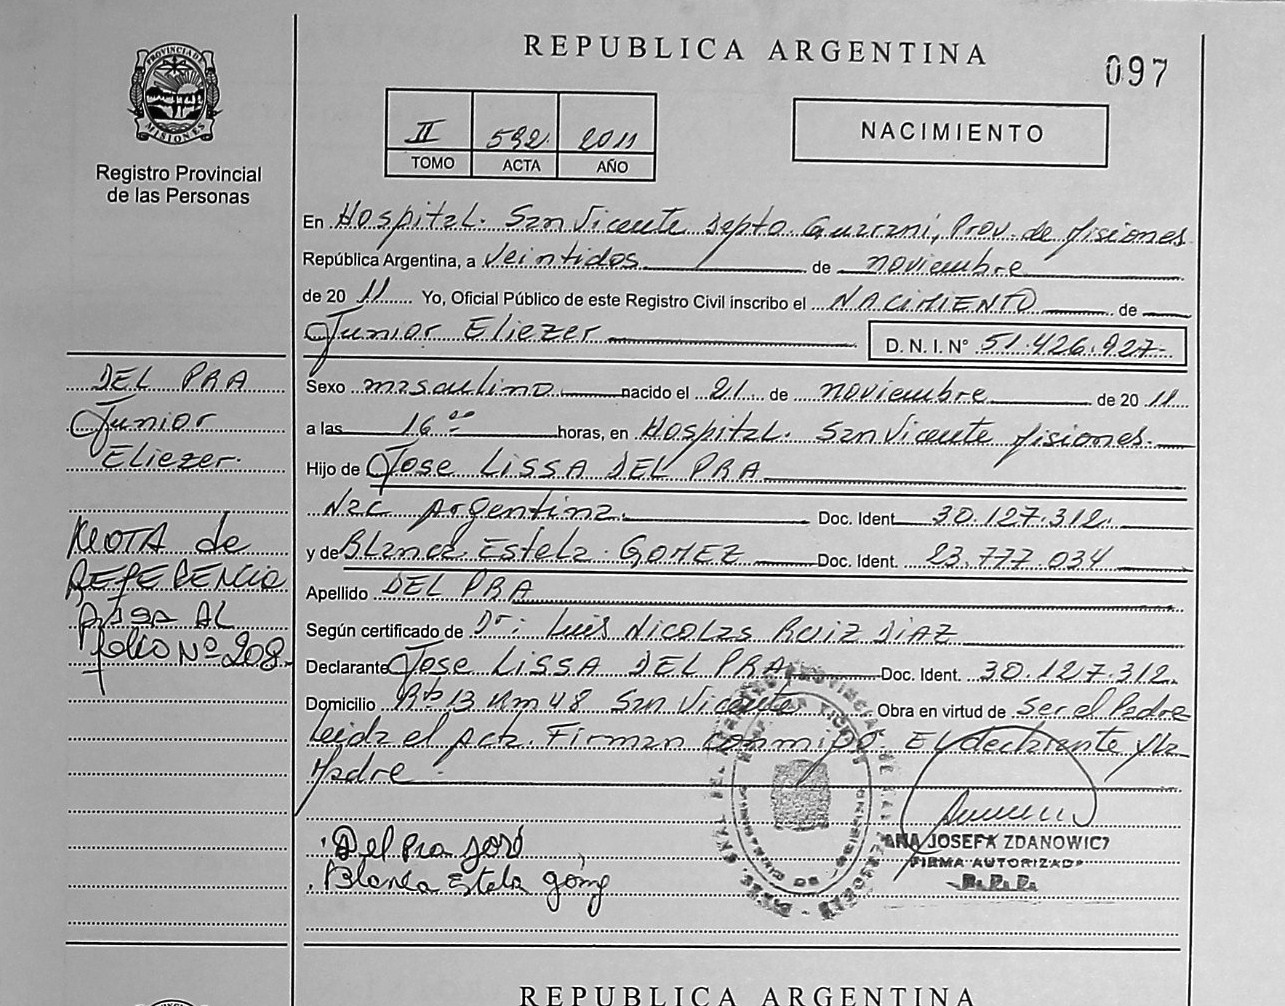 REPUBLICA ARGENTINA
097
PROVINCIA DE MISIONES
Registro Provincial
de las Personas
II 592 2011
TOMO ACTA AÑO
NACIMIENTO
En Hospital. San Vicente Depto. Guaraní, Prov. de Misiones
República Argentina, a Veintidos de noviembre
de 20 11 Yo, Oficial Público de este Registro Civil inscribo el NACIMIENTO de
Junior Eliezer D. N. I. N° 51.426.927
Sexo masculino nacido el 21 de noviembre de 20 11
a las 16 00 horas, en Hospital. San Vicente Misiones.
Hijo de Jose LISSA DEL PRA
Nac Argentina. Doc. Ident. 30.127.312.
y de Blanca Estela GOMEZ Doc. Ident. 23.777.034
Apellido DEL PRA
Según certificado de Dr: Luis Nicolas Ruiz Diaz
Declarante Jose LISSA DEL PRA Doc. Ident. 30.127.312.
Domicilio Rta 13 Km 48 San Vicente Obra en virtud de Ser el Padre
Leida el Acta. Firman Conmigo El declarante y la
Madre.
Del Pra José
Blanca Estela Gómez
ANA JOSEFA ZDANOWICZ
FIRMA AUTORIZADA
R.P.P.
DEL PRA
Junior
Eliezer.
NOTA de
REFERENCIA
PASA AL
folio Nº 208.
REPUBLICA ARGENTINA